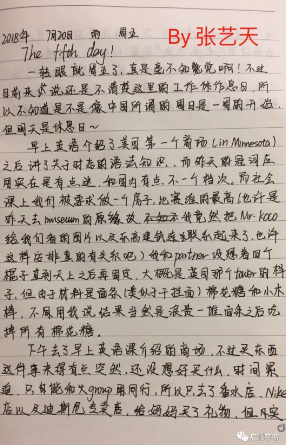 By 张艺天
2018年 7月20日 雨 周五
The fifth day!
一转眼就周五了,真是毫不知觉啊!不过
目前来说还是不清楚这里的工作休息日,所
以不知道是不是像中国所谓的周日是一周的开始,
但明天是休息日~
早上英语介绍了美国第一个商场(in Minnesota)
之后讲了关于时态的语法知识,而昨天的冠词后
用实在是有点迷,和国内有点不一个档次。而社会
课上我们被要求做一个房子,比赛谁的最高(也许是
昨天去museum的原缘故,不知不觉竟然把Mr Koco
给我们看的图片以及乐高建筑连生联系起来了,也许
这样安排真的有关系吧)我和partner设想着四个
棍子直到天上之后再固定,大概是英国那个tower的样
子,但由于材料是面条(类似于干挂面)棉花糖和小木
棒,不用用我说结果当然是沮丧一堆面条之后吃
掉所有棉花糖。
下午去了早上英语课介绍的商场,不过买东西
这件事来得有点突然,还没想好买什么,时间紧
迫,只有能和大group用同行,所以只去了香水店,Nike
店以及迪斯尼专卖店,给妈妈买了礼物,但只买